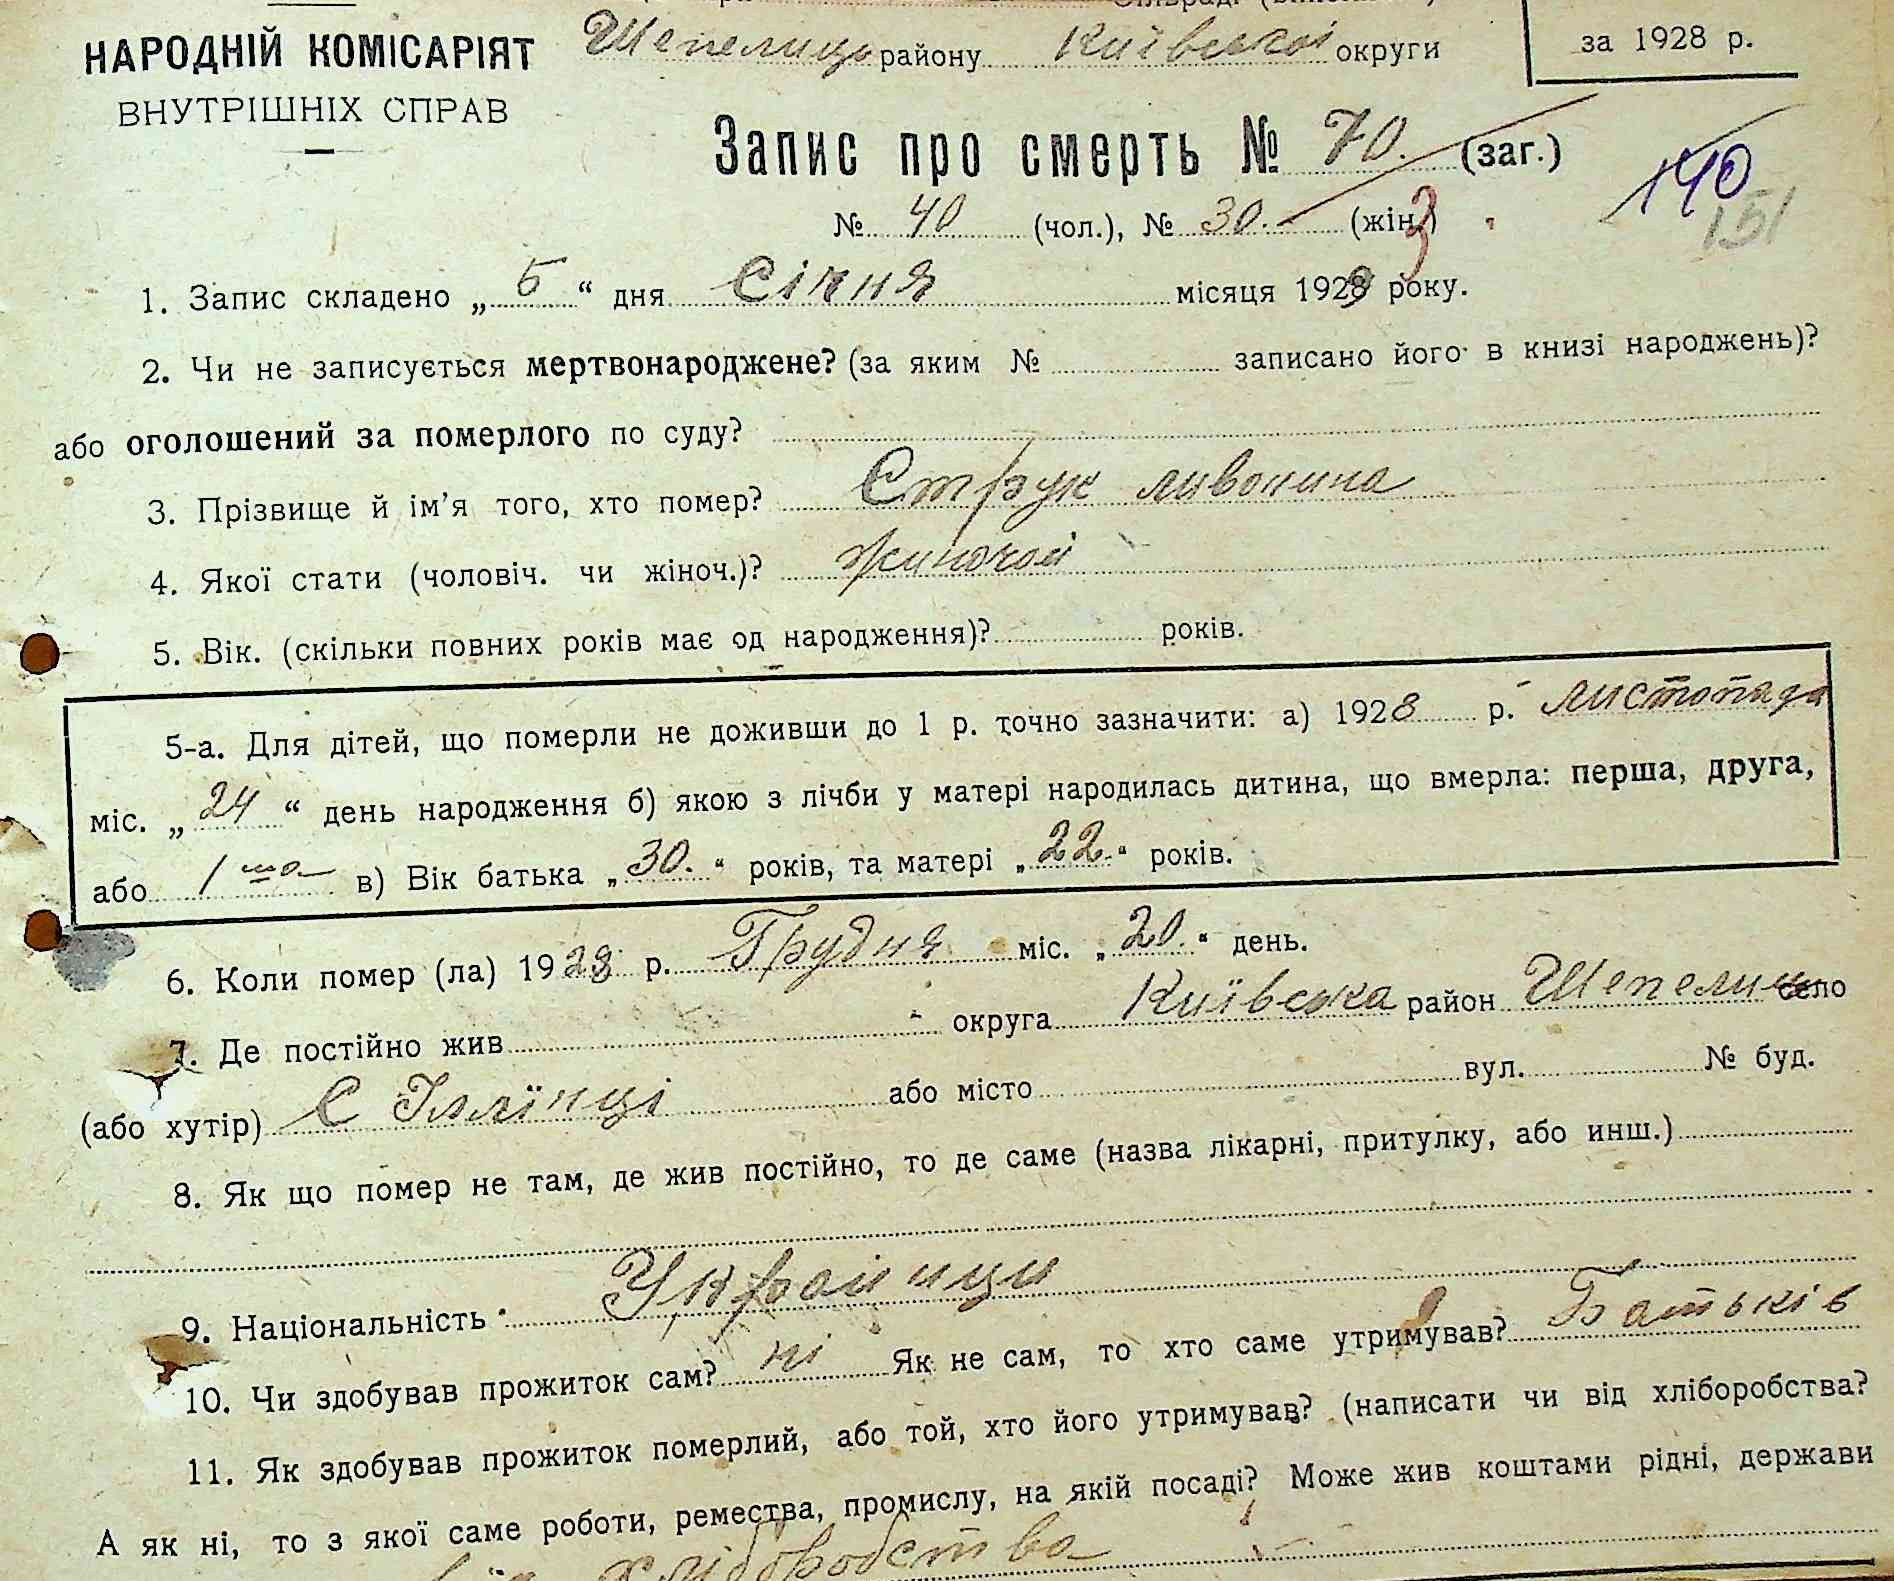 НАРОДНІЙ КОМІСАРІЯТ
ВНУТРІШНІХ СПРАВ
Шепелиць району Київської округи
за 1928 р.
Запис про смерть № 70. (заг.)
140
151
№ 40 (чол.), № 30. (жін.)
3
1. Запис складено „ 5 “ дня Січня місяця 1929 року.
2. Чи не записується мертвонароджене? (за яким № записано його в книзі народжень)?
або оголошений за померлого по суду?
3. Прізвище й ім’я того, хто помер? Струк
4. Якої стати (чоловіч. чи жіноч.)? жиночой
5. Вік. (скільки повних років має од народження)? років.
5-а. Для дітей, що померли не доживши до 1 р. точно зазначити: а) 1928 р. листопада
міс. „ 24 “ день народження б) якою з лічби у матері народилась дитина, що вмерла: перша, друга,
або 1 ша в) Вік батька „ 30. “ років, та матері „ 22. “ років.
6. Коли помер (ла) 1928 р. Грудня міс. „ 20. “ день.
7. Де постійно жив округа Київська район Шепелиц село
(або хутір) С Іллїнці або місто вул. № буд.
8. Як що помер не там, де жив постійно, то де саме (назва лікарні, притулку, або инш.)
9. Національність Украінци
10. Чи здобував прожиток сам? ні Як не сам, то хто саме утримував? Батьків
11. Як здобував прожиток померлий, або той, хто його утримував? (написати чи від хліборобства?
А як ні, то з якої саме роботи, ремества, промислу, на якій посаді? Може жив коштами рідні, держави
хліборобства